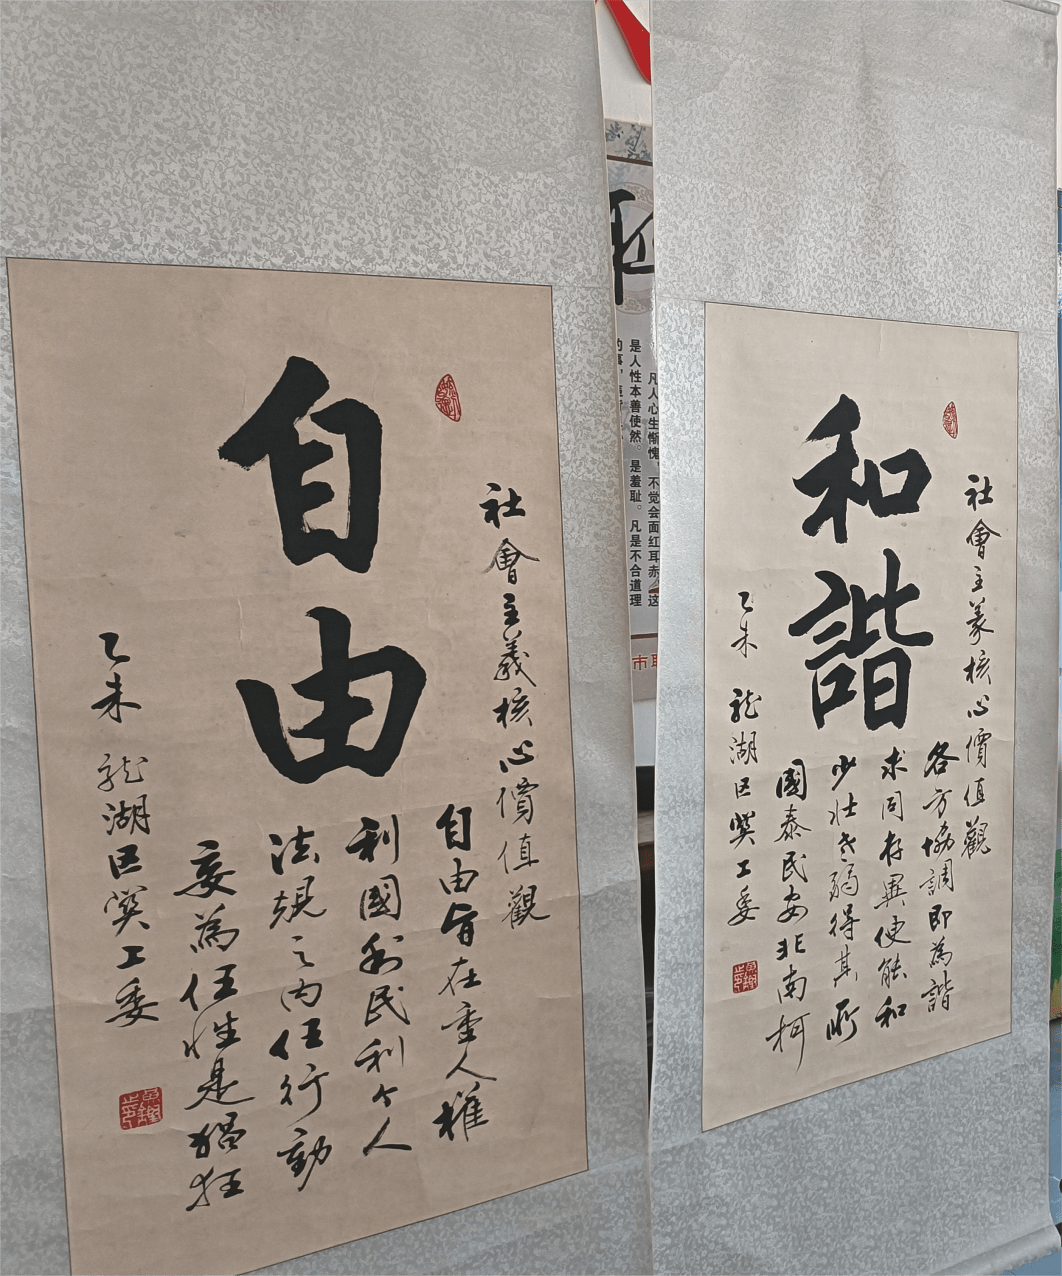 自由
社會主義核心價值觀
自由旨在重人權
利國利民利个人
法規之內任行動
妄為任性是猖狂
乙未 龍湖区关工委
是人性本善使然。是羞耻。凡是不合道理
凡人心生惭愧,不觉会面红耳赤,这
和諧
社會主義核心價值觀
各方協調即為諧
求同存異使能和
少壯老弱得其所
國泰民安非南柯
乙未 龍湖区关工委